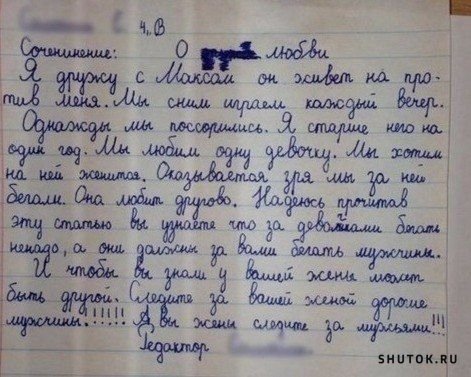 4 "В
Сочинение: О любви
Я дружу с Максом он живет на про-
тив меня. Мы сним играем каждый вечер.
Однажды мы поссорились. Я старше него на
один год. Мы любим одну девочку. Мы хотим
на ней женится. Оказывается зря мы за ней
бегали. Она любит другово. Надеюсь прочитав
эту статью вы узнаете что за девочками бегать
ненадо, а они должны за вами бегать мужчины.
И чтобы вы знали у вашей жены может
быть другой. Следите за вашей женой дорогие
мужчины.!!!!! А вы жены следите за мужьями!!!
Редактор
SHUTOK.RU